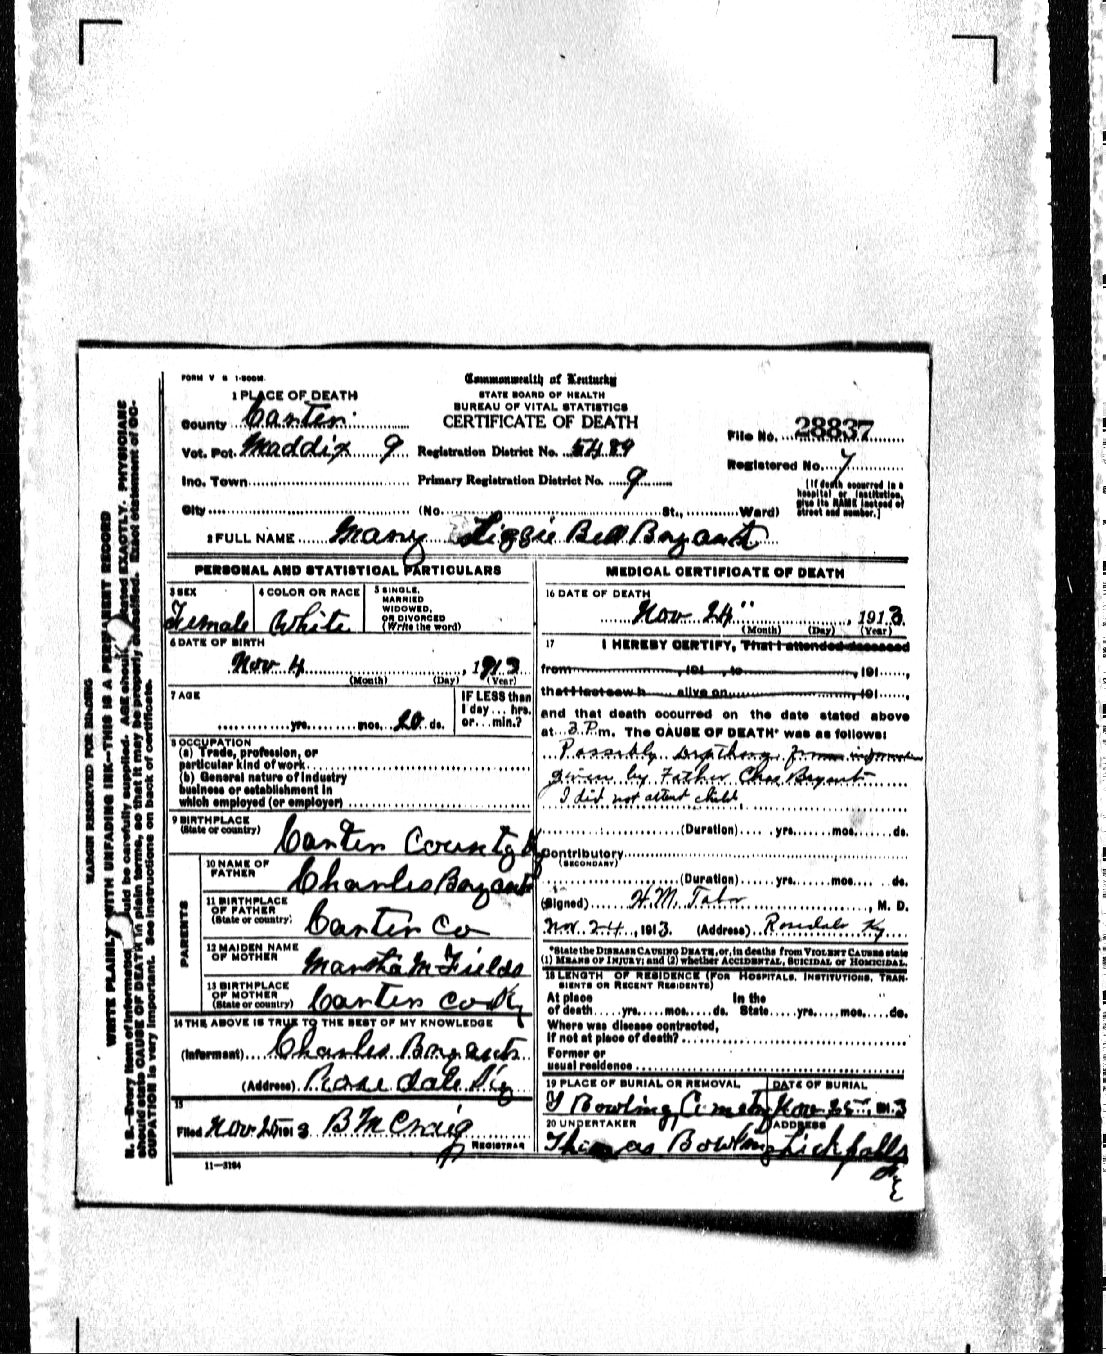 FORM V S 1-500M.
Commonwealth of Kentucky
STATE BOARD OF HEALTH
BUREAU OF VITAL STATISTICS
CERTIFICATE OF DEATH
1 PLACE OF DEATH
County Carter
Vot. Pct. Maddix 9 Registration District No. 5489
File No. 28837
Registered No. 7
Inc. Town Primary Registration District No. 9
[If death occurred in a
hospital or institution,
give its NAME instead of
street and number.]
City (No. St., Ward)
2 FULL NAME Mary Lizzie Bell Bryant
PERSONAL AND STATISTICAL PARTICULARS
3 SEX
Female
4 COLOR OR RACE
White
5 SINGLE,
MARRIED
WIDOWED,
OR DIVORCED
(Write the word)
6 DATE OF BIRTH
Nov 4, 1913
(Month) (Day) (Year)
7 AGE
yrs. mos. 20 ds.
IF LESS than
1 day... hrs.
or... min.?
8 OCCUPATION
(a) Trade, profession, or
particular kind of work
(b) General nature of industry
business or establishment in
which employed (or employer)
9 BIRTHPLACE
(State or country)
Carter County Ky
PARENTS
10 NAME OF
FATHER
Charles Bryant
11 BIRTHPLACE
OF FATHER
(State or country)
Carter Co
12 MAIDEN NAME
OF MOTHER
Martha M Fields
13 BIRTHPLACE
OF MOTHER
(State or country)
Carter Co Ky
14 THE ABOVE IS TRUE TO THE BEST OF MY KNOWLEDGE
(Informant) Charles Bryant
(Address) Rose dale Ky
15
Filed Nov 25 1913 B M Craig
REGISTRAR
11—3184
MEDICAL CERTIFICATE OF DEATH
16 DATE OF DEATH
Nov 24", 1913
(Month) (Day) (Year)
17 I HEREBY CERTIFY, That I attended deceased
from, 191, to, 191,
that I last saw h alive on, 191,
and that death occurred on the date stated above
at 3 P.m. The CAUSE OF DEATH* was as follows:
Possibly from
given by Father Chas Bryant
I did not attend child
(Duration) yrs. mos. ds.
Contributory
(SECONDARY)
(Duration) yrs. mos. ds.
(Signed) H.M. Tabor, M. D.
Nov. 24, 1913. (Address) Rosedale Ky
*State the DISEASE CAUSING DEATH, or, in deaths from VIOLENT CAUSES state
(1) MEANS OF INJURY; and (2) whether ACCIDENTAL, SUICIDAL or HOMICIDAL.
18 LENGTH OF RESIDENCE (FOR HOSPITALS, INSTITUTIONS, TRAN-
SIENTS OR RECENT RESIDENTS)
At place In the
of death yrs. mos. ds. State yrs. mos. ds.
Where was disease contracted,
if not at place of death?
Former or
usual residence
19 PLACE OF BURIAL OR REMOVAL
Bowling
DATE OF BURIAL
Nov 25, 1913
20 UNDERTAKER
Thomas Bowling
ADDRESS
Lickfalls
Ky
MARGIN RESERVED FOR BINDING
WRITE PLAINLY WITH UNFADING INK—THIS IS A PERMANENT RECORD
N. B.—Every item of information should be carefully supplied. AGE should be stated EXACTLY. PHYSICIANS
should state CAUSE OF DEATH in plain terms, so that it may be properly classified. Exact statement of OC-
CUPATION is very important. See instructions on back of certificate.